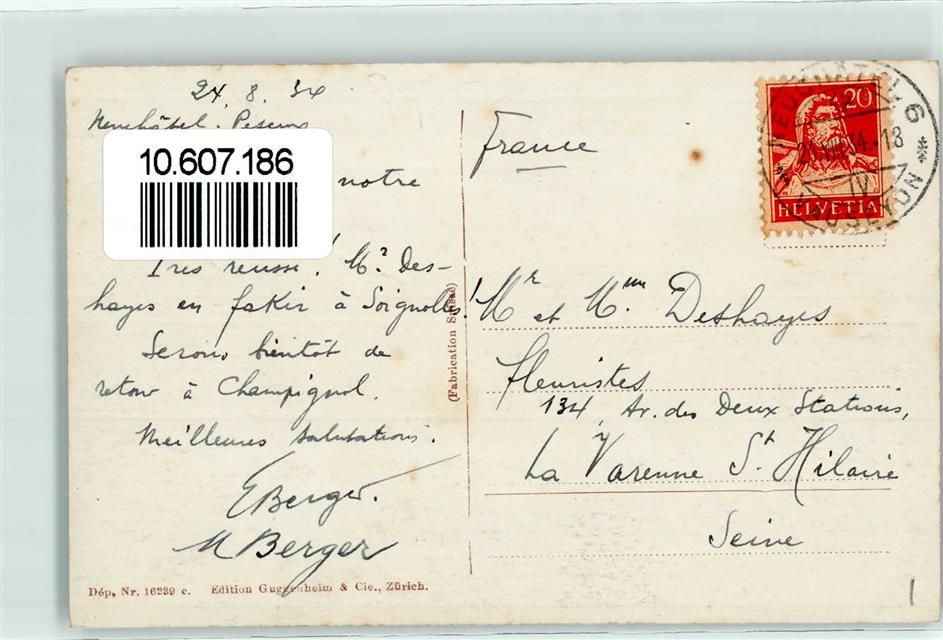 24.8.34
Neuchâtel. Peseux
10.607.186
notre
Très réussi, Mr Des-
hayes en fakir à Soignolles!
Serons bientôt de
retour à Champignol.
Meilleures salutations.
EBerger.
M Berger
Dép. Nr. 16239 c. Edition Guggenheim & Cie., Zürich.
(Fabrication Suisse)
France
20
HELVETIA
NEUCHATEL 6
VAUSEYON
Mr et Mme Deshayes
fleuristes
134, Av. des Deux Stations,
La Varenne St. Hilaire
Seine
1